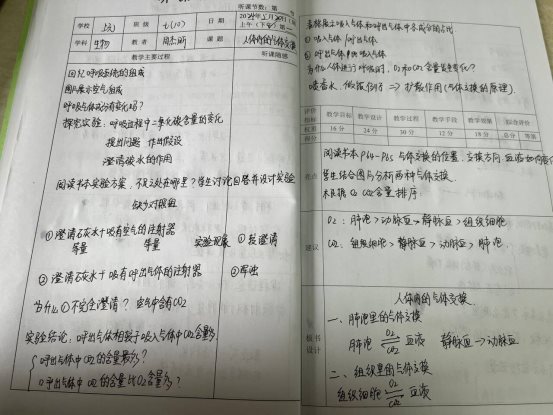 听课节数：第
学校 上 班级 七(10) 日期 2024年5月20日 上午(下午)第一
学科 生物 教者 周 课题 人体内的气体交换
教学主要过程 听课随感
回忆呼吸系统的组成
图片展示空气组成
呼吸气体成分有变化吗？
探究实验：呼吸过程中二氧化碳含量的变化
提出问题 作出假设
澄清碳水的作用
阅读书本实验方案，不足之处在哪里？学生讨论回答并设计实验
缺少对照组
①澄清石灰水＋吸有空气的注射器 实验现象 ①较澄清
等量 等量
②澄清石灰水＋吸有呼出气体的注射器 ②浑浊
为什么①不完全澄清？ 空气中含有CO2
实验结论：呼出气体相较于吸入气体中CO2含量多
呼出气体中CO2的含量最多？
呼出气体中CO2的含量比O2含量多？
表格展示吸入气体和呼出气体中各成分的占比
① 吸入气体／呼出气体
② 呼出气体中吸入气体
为什么人体进行呼吸时，O2和CO2含量发生变化？
滴墨水，做成例子 ⇒ 扩散作用(气体交换的原理)
评价指标 教学目标 教学设计 教学过程 教学手段 教学效果 综合评价
权重 16分 24分 30分 12分 18分 总分 等第
得分
亮点
阅读书本P64-P65 气体交换的位置、交换方向
学生结合图片分析两种气体交换
来根据O2 CO2含量排序
建议
O2：肺泡＞动脉血＞静脉血＞组织细胞
CO2：组织细胞＞静脉血＞动脉血＞肺泡
板书设计
人体内的气体交换
一、肺泡里的气体交换
肺泡 O2 ⇌ CO2 血液 静脉血→动脉血
二、组织里的气体交换
组织细胞 O2 ⇌ CO2 血液